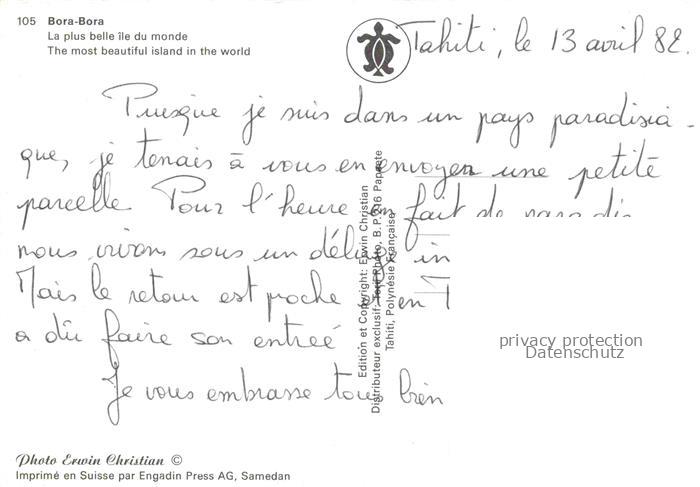 105 Bora-Bora
La plus belle île du monde
The most beautiful island in the world
Tahiti, le 13 avril 82.
Puisque je suis dans un pays paradisia-
que, je tenais à vous en envoyer une petite
parcelle. Pour l'heure en fait de paradis
nous vivons sous un déluge in
Mais le retour est proche et en
a dû faire son entrée
Je vous embrasse tous bien
Edition et Copyright: Erwin Christian
Distributeur exclusif: Tahiti, B.P. Papeete
Tahiti, Polynésie Française
privacy protection
Datenschutz
Photo Erwin Christian ©
Imprimé en Suisse par Engadin Press AG, Samedan